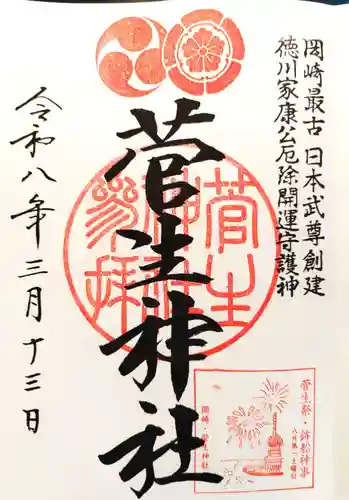 岡崎最古 日本武尊創建
徳川家康公厄除開運守護神
菅生神社
菅生神社参拝
令和八年三月十三日
菅生祭・鉾船神事
八月第一土曜日
岡崎・菅生神社